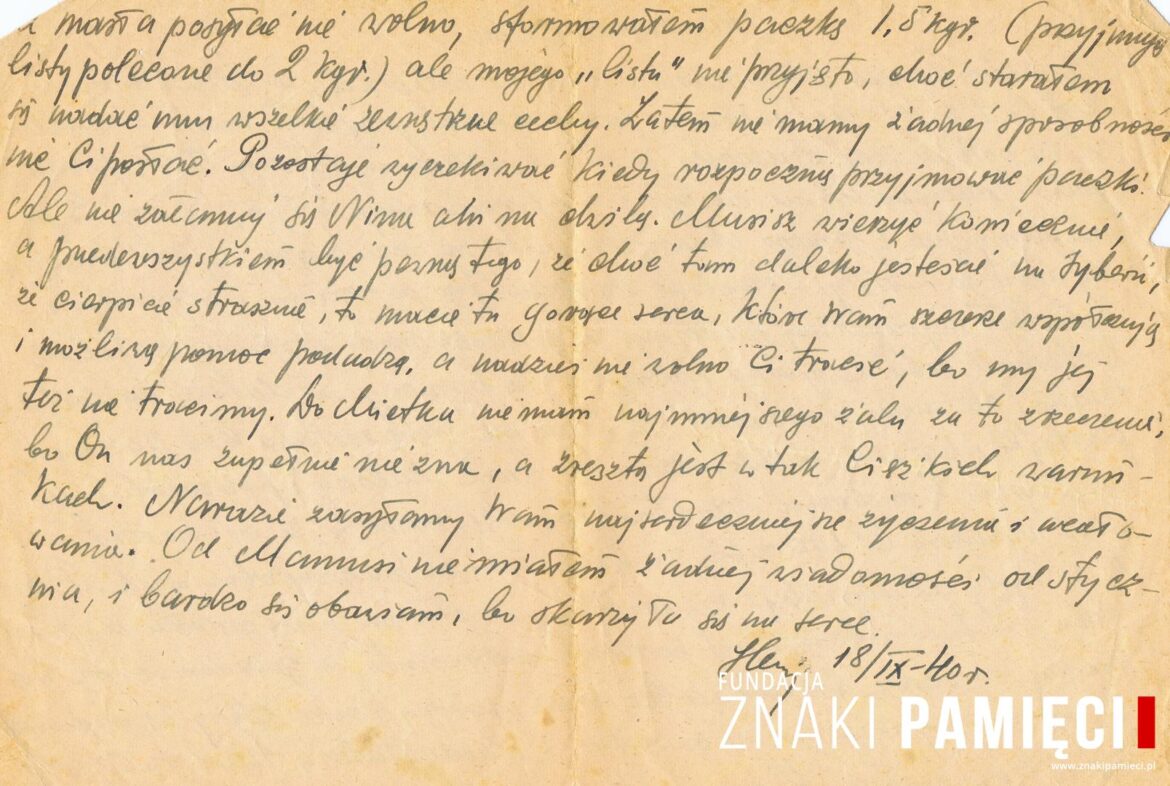 masła posyłać nie wolno, sformowałem paczkę 1,5 kgr. (przyjmują
listy polecone do 2 kgr.) ale mojego „listu" nie przyjęto, choć starałem
się nadać mu wszelkie zewnętrzne cechy. Zatem nie mamy żadnej sposobności
nic Ci posłać. Pozostaje wyczekiwać kiedy rozpoczną przyjmować paczki.
Ale nie załamuj się Nina ani na chwilę. Musisz wierzyć koniecznie,
a przedewszystkiem być pewną tego, że choć tam daleko jesteście na Syberii,
że cierpicie strasznie, to macie tu gorące serca, które Wam szczerze współczują
i możliwą pomoc podadzą, a nadziei nie wolno Ci tracić, bo my jej
też nie tracimy. Do Mietka nie mam najmniejszego żalu za to zrzeczenie,
bo On nas zupełnie nie zna, a zresztą jest w tak ciężkich warun-
kach. Narazie zasyłamy Wam najserdeczniejsze życzenia i ucało-
wania. Od Mamusi nie miałem żadnej wiadomości od stycz-
nia, i bardzo się obawiam, bo skarżyła się na serce.
18/IX-40 r.
FUNDACJA
ZNAKI PAMIĘCI
www.znakipamieci.pl